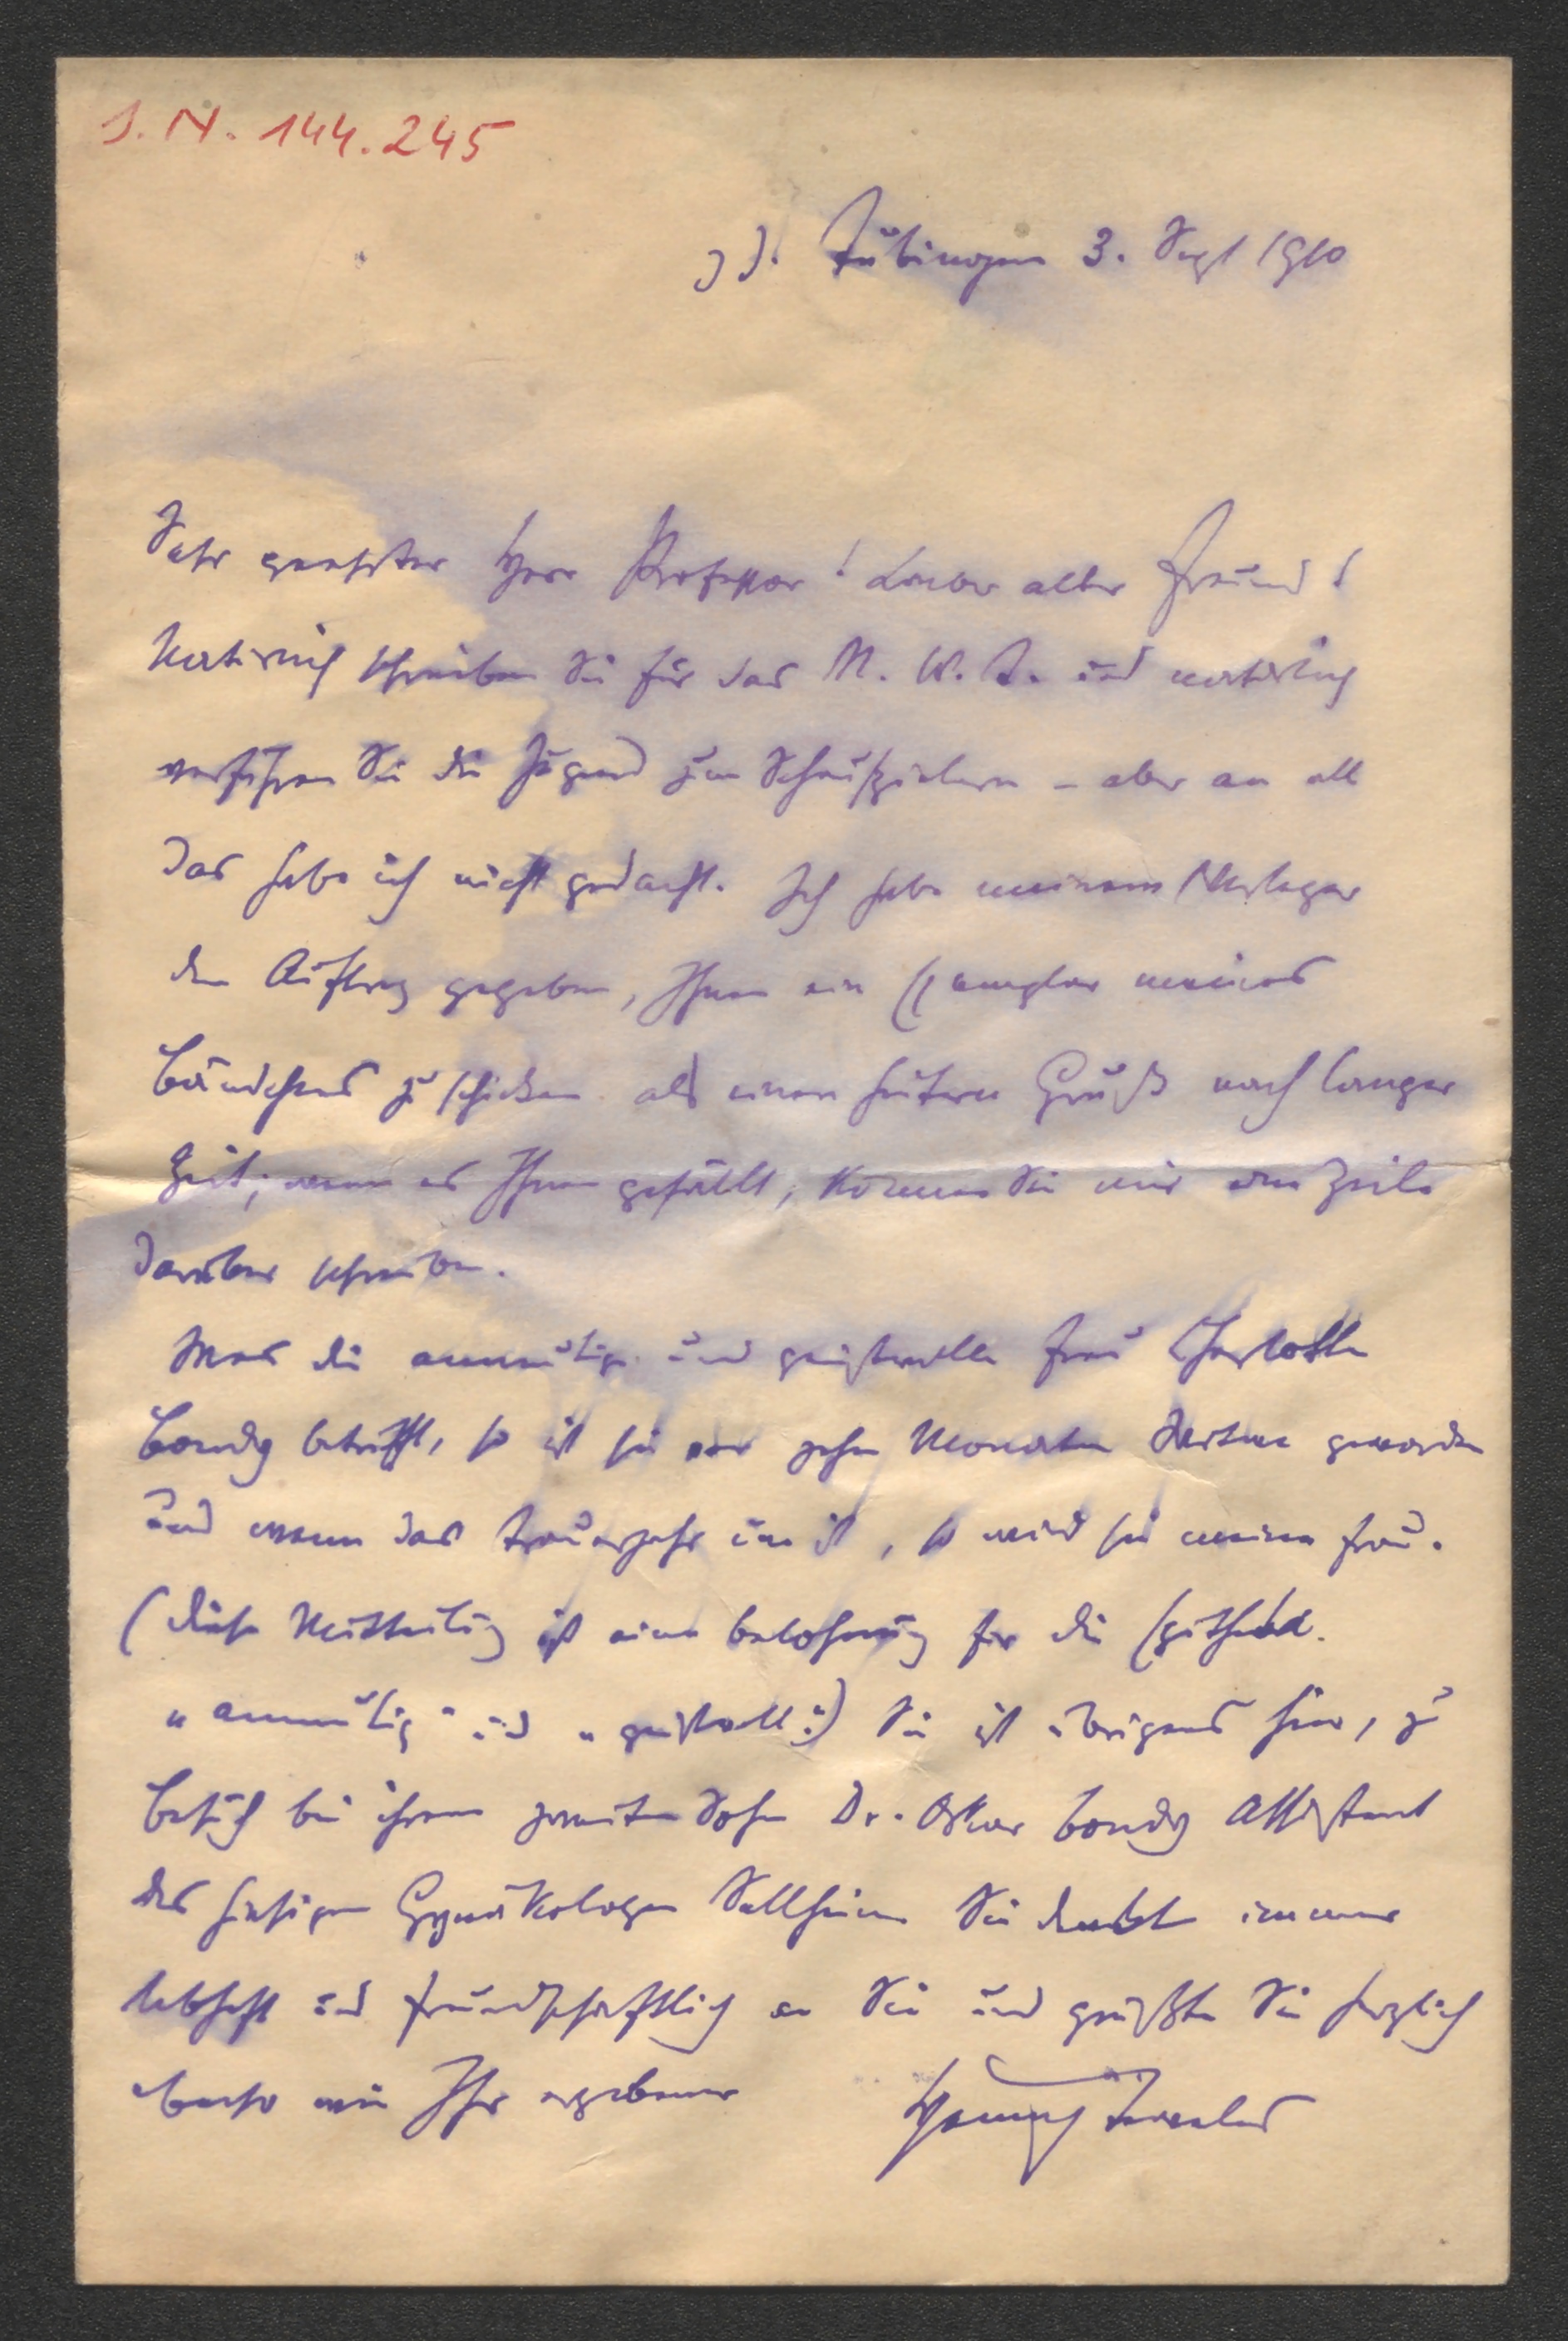 I. N. 144.245
z. Z. Tübingen 3. Sept 1910
Sehr geehrter Herr Professor! Lieber alter Freund!
Natürlich schreiben Sie für das N. W. T. und natürlich
verführen Sie die Jugend zum Schauspielern – aber an all
das habe ich nicht gedacht. Ich habe meinem Verleger
den Auftrag gegeben, Ihnen ein Exemplar meines
Bändchens zu schicken als einen heitern Gruß nach langer
Zeit; wenn es Ihnen gefällt, können Sie mir eine Zeile
darüber schreiben.
Was die anmutige und geistvolle Frau Charlotte
Bondy betrifft, so ist sie vor zehn Monaten Witwe geworden
und wenn das Trauerjahr um ist, so wird sie meine Frau.
(Diese Mitteilung ist eine Belohnung für die Epitheta
„anmutig" und „geistvoll".) Sie ist übrigens hier, zu
Besuch bei ihrem zweiten Sohn Dr. Oskar Bondy Assistent
des hiesigen Gynäkologen Sellheim Sie denkt immer
lebhaft und freundschaftlich an Sie und grüßt Sie herzlich
ebenso wie Ihr ergebener